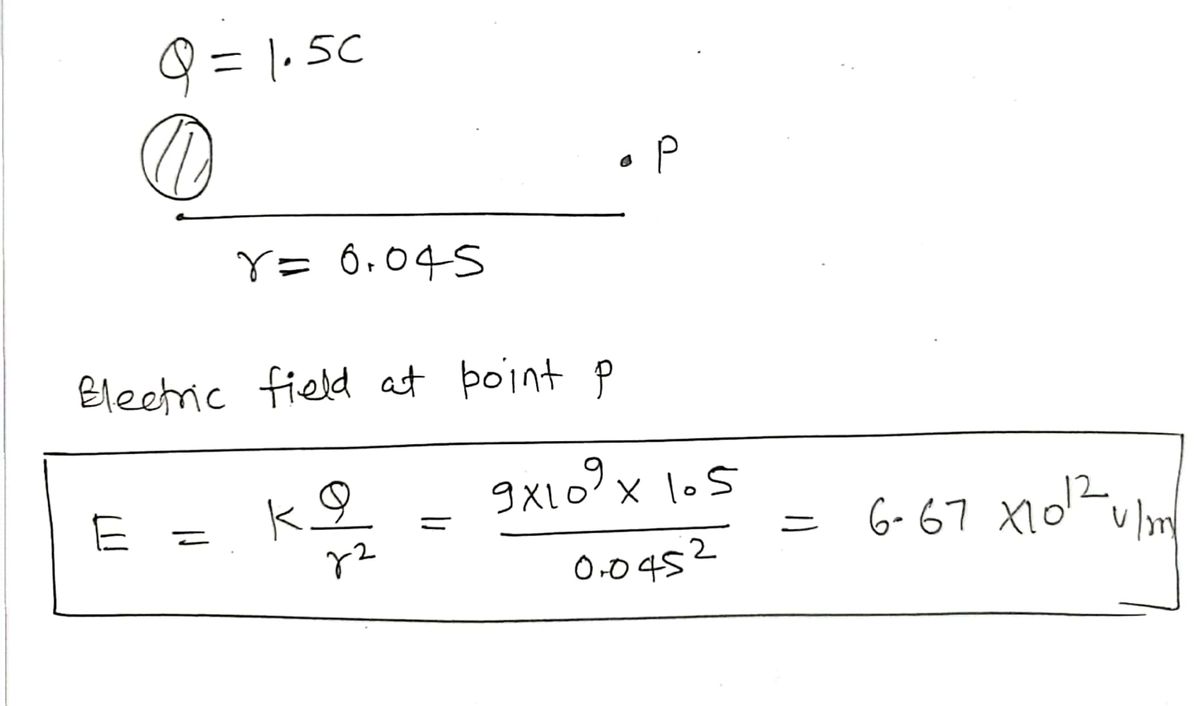 Q = 1.5C
. P
r = 0.045
Electric field at point P
E = k Q/r² = 9×10⁹ × 1.5/0.045² = 6.67 ×10¹² v/m